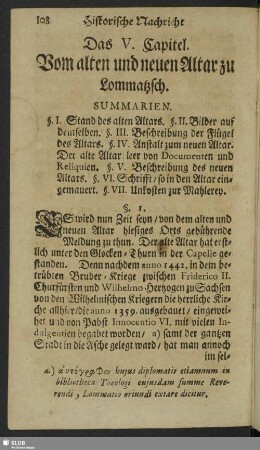 108 Historische Nachricht
Das V. Capitel.
Vom alten und neuen Altar zu
Lommatzsch.
SUMMARIEN.
§. I. Stand des alten Altars. §. II. Bilder auf
demselben. §. III. Beschreibung der Flügel
des Altars. §. IV. Anstalt zum neuen Altar.
Der alte Altar leer von Documenten und
Reliquien. §. V. Beschreibung des neuen
Altars. §. VI. Schrifft, so in den Altar ein-
gemauert. §. VII. Unkosten zur Mahlerey.
§. 1.
ES wird nun Zeit seyn, von dem alten und
neuen Altar hiesiges Orts gebührende
Meldung zu thun. Der alte Altar hat erst-
lich unter den Glocken-Thurn in der Capelle ge-
standen. Denn nachdem anno 1442. in dem be-
trübten Bruder-Kriege zwischen Friderico II.
Churfürsten und Wilhelmo Hertzogen zu Sachsen
von den Wilhelmischen Kriegern die herrliche Kir-
che allhier, die anno 1359. ausgebauet, eingewei-
het und von Pabst Innocentio VI. mit vielen In-
dulgentien begabet worden, a) samt der gantzen
Stadt in die Asche gelegt ward, hat man annoch
im sel-
a.) hujus diplomatis etiamnum in
bibliotheca Tacologi cujusdam summe Reve-
rendi, Lommatio oriundi extare dicitur.
SLUB